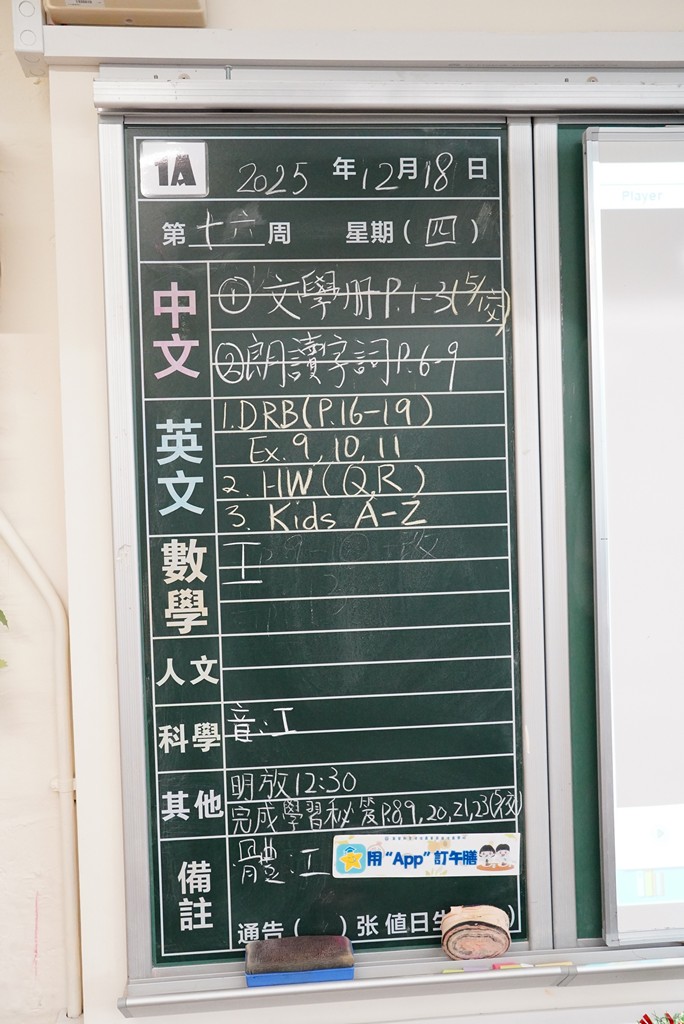 1A 2025年12月18日
第十六周 星期(四)
中文
① 文學册P.1-3(5/交)
②朗讀字詞P.6-9
英文
1.DRB(P.16-19)
Ex.9,10,11
2. HW(Q,R)
3. Kids A-Z
數學
工
人文
科學
音:工
其他
明放12:30
完成學習秘笈P.8,9,20,21,23
備註
體:工
用"App"訂午膳
通告( )张 值日生
Player